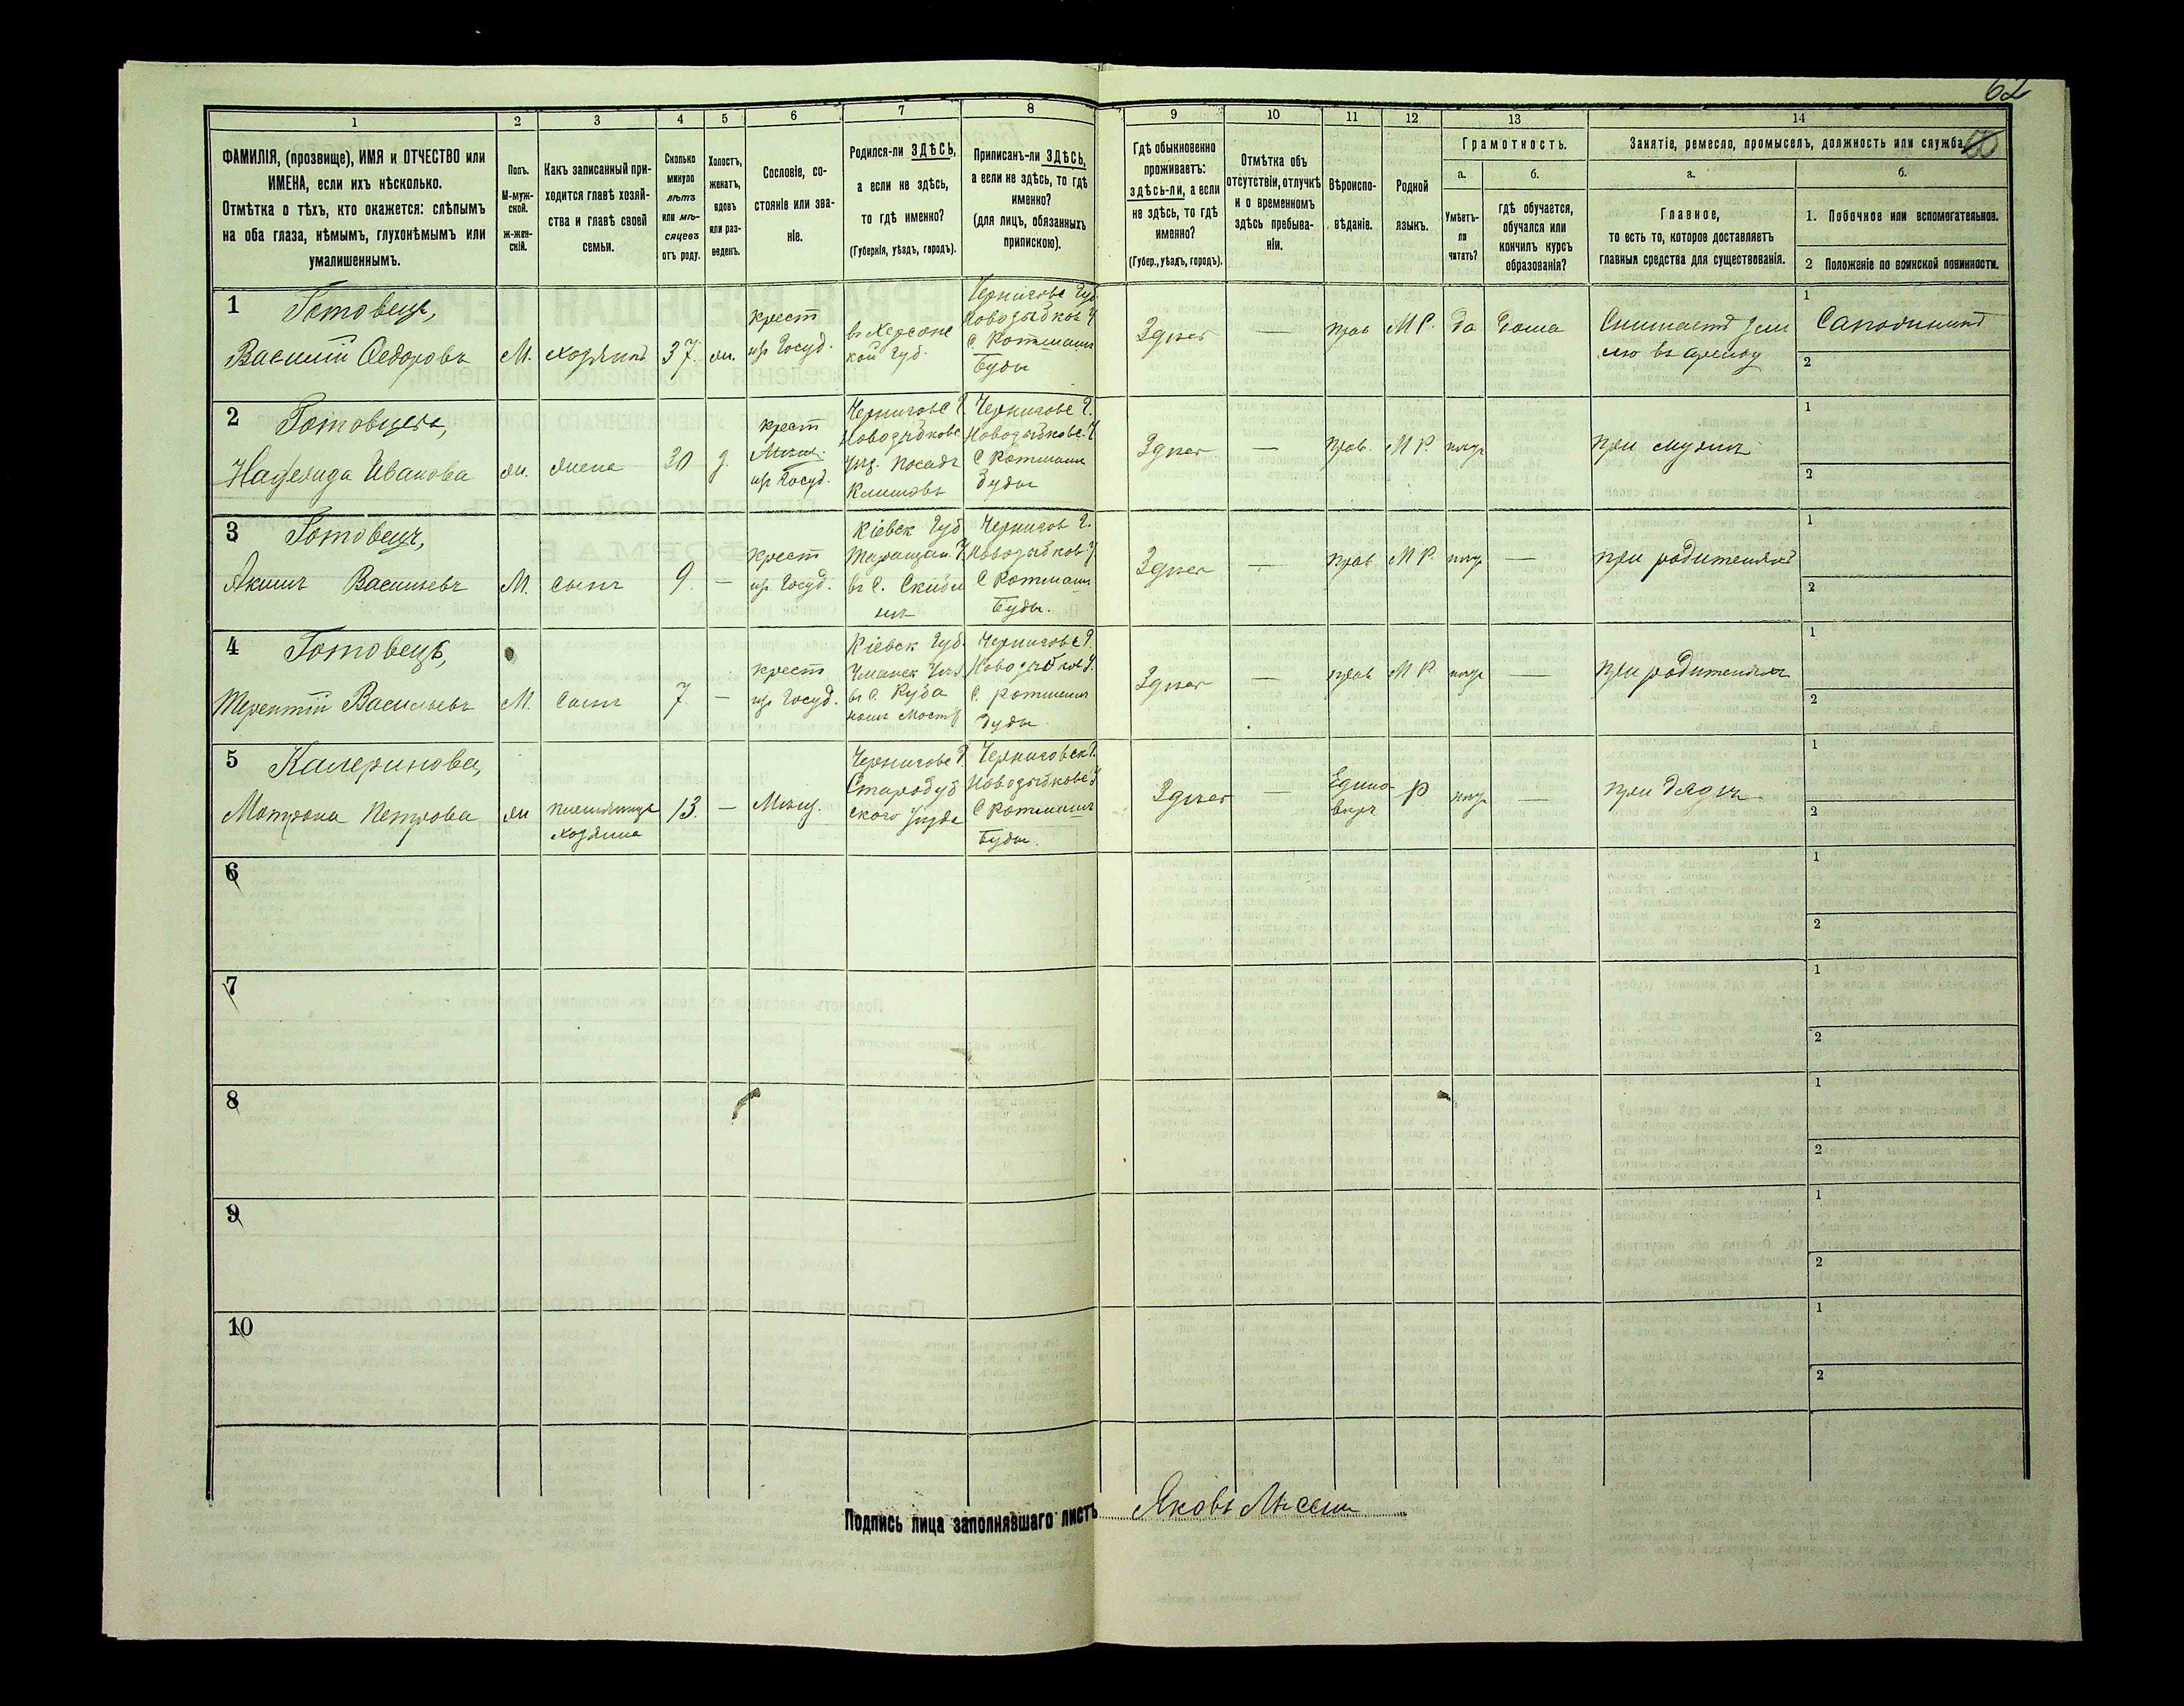 62
1 2 3 4 5 6 7 8 9 10 11 12 13 14
ФАМИЛІЯ, (прозвище), ИМЯ и ОТЧЕСТВО или
ИМЕНА, если ихъ нѣсколько.
Отмѣтка о тѣхъ, кто окажется: слѣпымъ
на оба глаза, нѣмымъ, глухонѣмымъ или
умалишеннымъ.
Полъ.
М-муж-
ской.
ж-жен-
скій.
Какъ записанный при-
ходится главѣ хозяй-
ства и главѣ своей
семьи.
Сколько
минуло
лѣтъ
или мѣ-
сяцевъ
отъ роду.
Холостъ,
женатъ,
вдовъ
или раз-
веденъ.
Сословіе, со-
стояніе или зва-
ніе.
Родился-ли ЗДѢСЬ,
а если не здѣсь,
то гдѣ именно?
(Губернія, уѣздъ, городъ).
Приписанъ-ли ЗДѢСЬ,
а если не здѣсь, то гдѣ
именно?
(для лицъ, обязанныхъ
припискою).
Гдѣ обыкновенно
проживаетъ:
здѣсь-ли, а если
не здѣсь, то гдѣ
именно?
(Губер., уѣздъ, городъ).
Отмѣтка объ
отсутствіи, отлучкѣ
и о временномъ
здѣсь пребыва-
ніи.
Вѣроиспо-
вѣданіе.
Родной
языкъ.
Грамотность.
а.
Умѣетъ-
ли
читать?
б.
гдѣ обучается,
обучался или
кончилъ курсъ
образованія?
Занятіе, ремесло, промыселъ, должность или служба.
а.
Главное,
то есть то, которое доставляетъ
главныя средства для существованія.
б.
1. Побочное или вспомогательное.
2 Положеніе по воинской повинности.
1
Готовецъ,
Василій Федоровъ
М.
хозяинъ
37.
ж.
крест
изъ Госуд.
въ Херсонс
кой губ.
Чернигове Губ
Новозыбков У
С Котманъ
Буды
Здѣсь
—
прав
М Р.
да
дома
Снимаетъ зем
лю въ аренду
1
Сапожникъ
2
2
Готовцева,
Ивановa
ж.
жена
30
з.
крест
изъ Госуд.
Чернигове Г.
Новозыбкове
уѣз. посадъ
Климовъ
Чернигове Г.
Новозыбкове. У
С Котманъ
Буды
Здѣсь
—
прав.
М Р.
нѣтъ
при мужѣ
1
2
3
Готовецъ,
Акимъ Васильевъ
М.
сынъ
9.
—
крест
из. Госуд.
Кіевск Губ
Таращан. У.
въ С. Скиби
нѣ
Чернигов Г.
Новозыбков У
С Котманъ
Буды.
Здѣсь
—
прав
М Р.
нѣтъ
—
при родителяхъ
1
2
4
Готовецъ,
Терентій Васильевъ
М.
сынъ
7.
—
крест
изъ Госуд.
Кіевск Губ.
Уманск Уѣз.
въ С.
Чернигове Г.
Новозыбков У.
С. Котманъ
Буды
Здѣсь
—
прав
М Р
нѣтъ
—
при родителяхъ
1
2
5
Калеринова,
Матрона Петрова
ж
племянница
хозяина
13.
—
Мѣщ.
Чернигове Г.
Стародуб
ского Уѣзда
Черниговск Г.
Новозыбкове У
С Котманъ
Буды.
Здѣсь
—
Едино-
вѣръ
Р
нѣтъ
—
при дядѣ
1
2
6
1
2
7
1
2
8
1
2
9
1
2
10
1
2
Подпись лица заполнявшаго листъ Яковъ